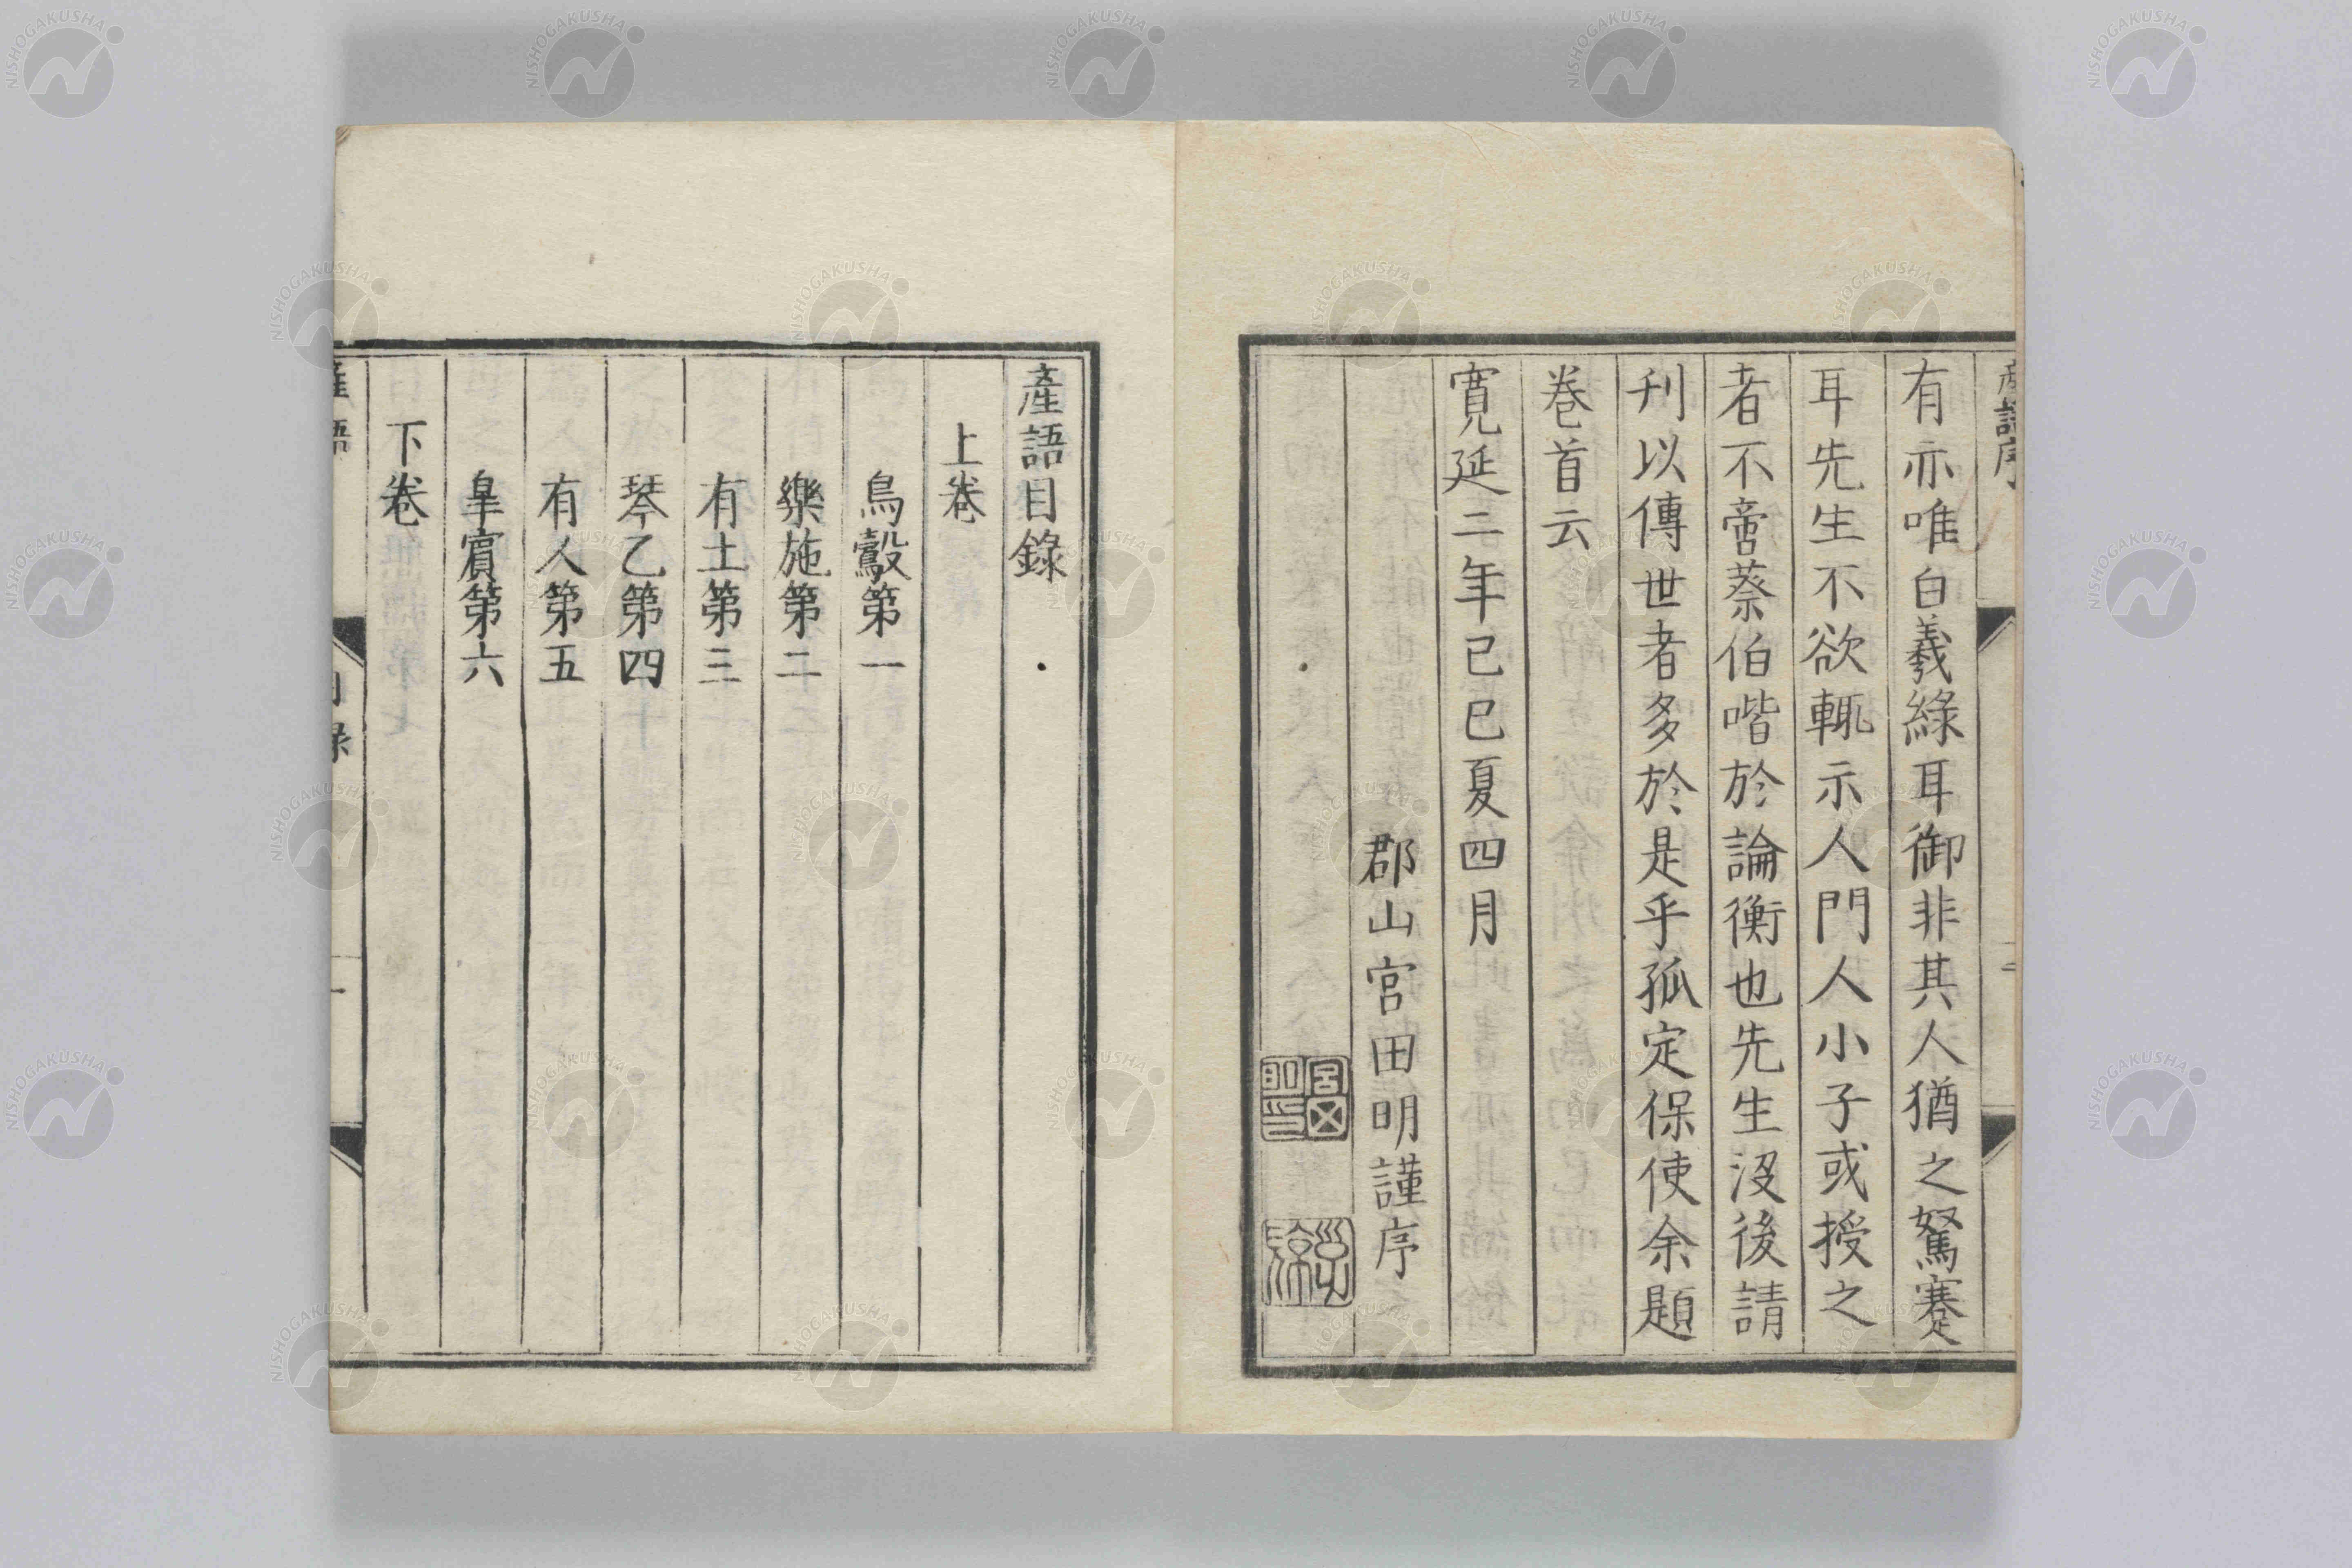 有亦唯白義綠耳御非其人猶之駑蹇
耳先生不欲輙示人門人小子或授之
者不啻蔡伯喈於論衡也先生沒後請
刊以傳世者多於是乎孤定保使余題
卷首云
寬延二年己巳夏四月
郡山宮田明謹序
產語目錄
上卷
鳥鷇第一
樂施第二
有土第三
琴乙第四
有人第五
皐賓第六
下卷
NISHOGAKUSHA